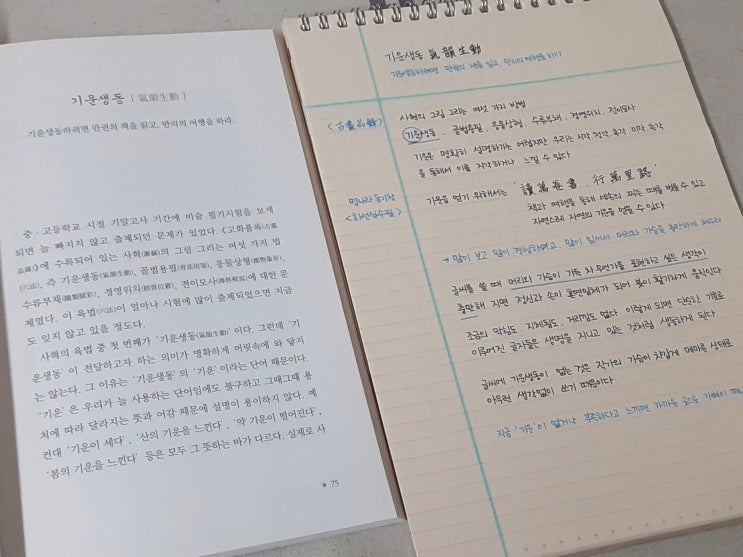 기운생동 | 氣韻生動 |
기운생동하려면 만권의 책을 읽고, 만리의 여행을 하라.
중·고등학교 시절 기말고사 기간에 미술 필기시험을 보게
되면 늘 빠지지 않고 출제되던 문제가 있었다. 《고화품록(古畵
品錄)》에 수록되어 있는 사혁(謝赫)의 그림 그리는 여섯 가지 법
(六法), 즉 기운생동(氣韻生動), 골법용필(骨法用筆), 응물상형(應物象形),
수류부채(隨類賦彩), 경영위치(經營位置), 전이모사(傳移模寫)에 대한 문
제였다. 이 육법(六法)이 얼마나 시험에 많이 출제되었으면 지금
도 잊지 않고 있을 정도다.
사혁의 육법 중 첫 번째가 '기운생동(氣韻生動)'이다. 그런데 '기
운생동'이 전달하고자 하는 의미가 명확하게 머릿속에 와 닿지
는 않는다. 그 이유는 '기운생동'의 '기운'이라는 단어 때문이다.
'기운'은 우리가 늘 사용하는 단어임에도 불구하고 그때그때 용
처에 따라 달라지는 뜻과 어감 때문에 설명이 용이하지 않다. 예
컨대 '기운이 세다', '산의 기운을 느낀다', '약 기운이 떨어진다',
'봄의 기운을 느낀다' 등은 모두 그 뜻하는 바가 다르다. 실제로 사
75
기운생동 氣韻生動
기운생동하려면 만권의 책을 읽고, 만리의 여행을 하라
<古畵品錄>
사혁의 그림 그리는 여섯 가지 방법
기운생동, 골법용필, 응물상형, 수류부채, 경영위치, 전이모사
기운은 명확히 설명하기는 어렵지만 우리는 시각, 청각, 후각, 미각, 촉각
을 통해서 이를 지각하거나 느낄 수 있다
명나라 동기창
<화선실수필>
기운을 얻기 위해서는 '讀萬卷書, 行萬里路'
책과 여행을 통해 세속의 찌든 때를 벗을 수 있고
자연스레 자연의 기운을 얻을 수 있다
→ 많이 보고 많이 경험하면서, 많이 읽어서 머리와 가슴을 충만하게 채우라
글씨를 쓸 때 머리와 가슴이 가득 차 무언가를 표현하고 싶은 생각이
충만해 지면 정신과 손이 혼연일체가 되어 붓이 활기차게 움직인다
조금의 막힘도, 지체됨도, 거리낌도 없다. 이렇게 되면 단순한 기호로
이루어진 글자들은 생명을 지니고 있는 것처럼 생동하게 된다
글씨에 기운생동이 없는 것은 작가의 가슴이 차갑게 메마른 상태로
아무런 생각없이 쓰기 때문이다.
지금 '기운'이 없거나 부족하다고 느끼면 가까운 곳을